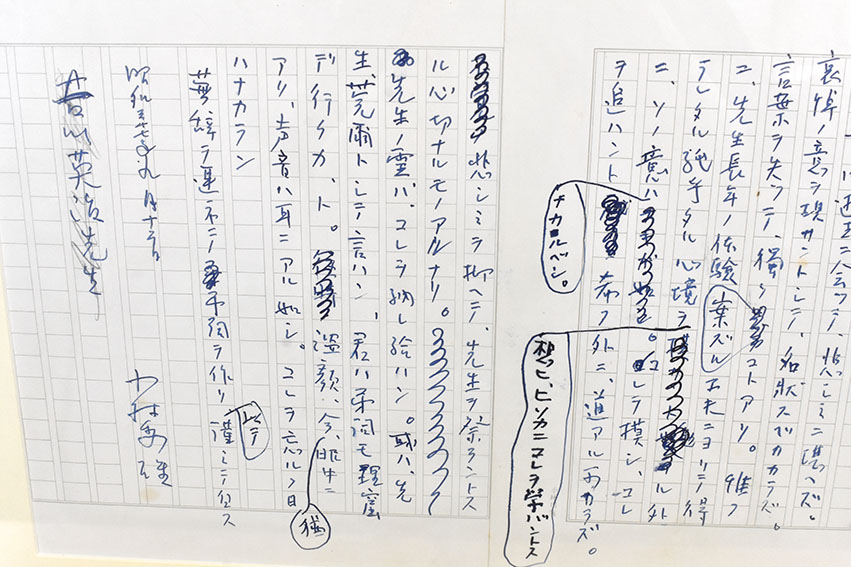 会ツテ、悲シミニ堪ヘズ。
哀悼ノ意ヲ現サントシテ、名状スベカラズ。
言葉ヲ失ツテ、獨リ コトアリ。惟フ
ニ、先生長年ノ体験 工夫ニヨリテ得
ラレタル純乎タル心境ヲ ル外
想ヒ、ヒソカニコレヲ学バントス
ニ、ソノ意ハ コレヲ摸シ、コレ
ナカルベシ。
ヲ追ハント 希フ外ニ、道アル可カラズ。
悲シミヲ抑ヘテ、先生ヲ祭ラントス
ル心切ナルモノアルナリ。
先生ノ霊ハ、コレヲ納レ給ハン。或ハ、先
生、莞爾トシテ言ハン、君ハ弔詞モ理窟
デ行クカ、ト。温顔、今、猶 眼中ニ
アリ、声音ハ耳ニアル如シ。コレヲ忘ルノ日
ハナカラン
蕪辞ヲ連ネテ 弔詞ヲ作リ 謹ミテ白ス
昭和三十七年九月十日
小林秀雄
吉川英治先生